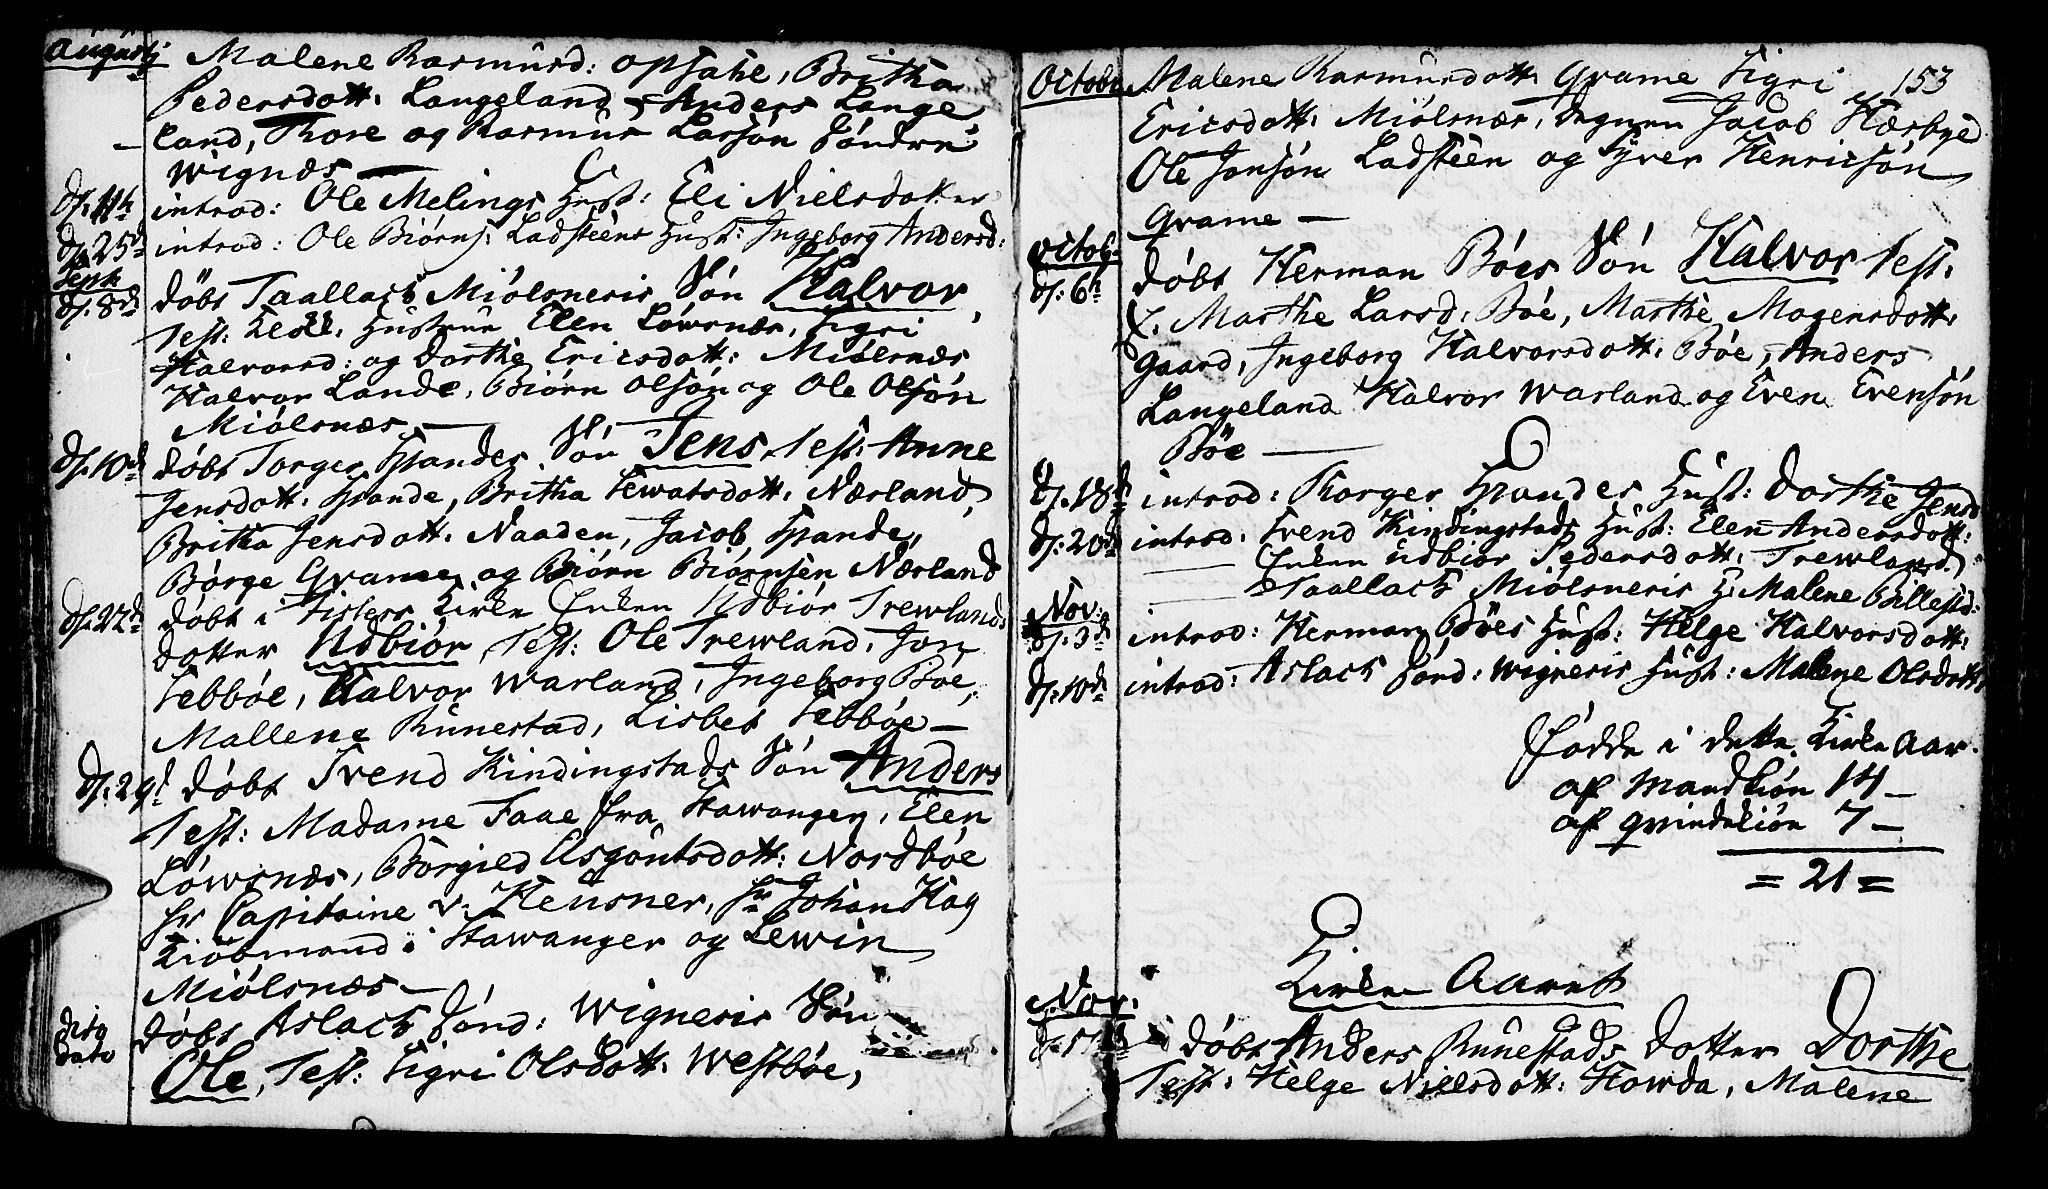 Augusti Malene Rasmusd: opsahl, Britha
Pedersdott: Langeland, Anders Lange
land, Thore og Rasmus Larsøn søndre
Wignæs —
d. 11te introd: Ole Melings Hust: Eli Nielsdatter
d. 25de introd: Ole Biørns: Ladsteens Hust: Ingeborg Andersd:
Septb.
d. 8de døbt Taallach Miølsneses Søn Halvor,
Test: Hustrue Elen Løwsnæs, Sigri
Halvorsd: og Dorthe Ericsdott: Miølsnæs
Halvor Lande, Biørn Olsøn og Ole Olsøn
Miølsnæs —
d. 10de døbt Torger Spandes Søn Jens, Test: Anne
Jensdott: Spande, Britha Sewatsdott: Nærland,
Britha Jensdott: Naaden, Jacob Spande,
Børge Qvame og Biørn Biørnsen Nærland
d. 22de døbt i Fisters Kirke Enken Udbiør Trewlands
dotter Udbiør, Test: Ole Trewland, Jon
Sebbøe, Halvor Warland, Ingeborg Bøe,
Mallene Runestad, Lisbet Sebbøe —
d. 29d døbt Svend Kindingstads Søn Anders
Test: Madame Faae fra Stawanger, Elen
Løwsnæs, Borgild Asgoutsdott: Nordbøe
hr Capitaine v: Heusner, hr Johan Hag
Kiøbmand i Stawanger og Lewin
Miølsnæs —
dito dato døbt Aslach sønd: Wigneses Søn
Ole, Test: Sigri Olsdott: Westbøe,
153
Octobr. Malene Rasmusdott: Qvame Sigri
Ericsdott: Miølsnæs, Degnen Jacob Hæsbye
Ole Jonsøn Ladsteen og Syver Henricsøn
Qvame —
Octob.
d. 6te døbt Herman Bøes Søn Halvor Test:
Marthe Larsd: Bøe, Marthe Mogensdott:
Gaard, Ingeborg Halvorsdott: Bøe, Anders
Langeland Halvor Warland og Even Evensøn
Bøe —
d. 18de introd: Thorger Spandes Hust: Dorthe Jensd
d. 20de introd: Svend Kindingstads Hust: Elen Andersdott:
— Enken Udbiør Pedersdott: Trewland
— Taallach Miølsneses H: Malene Billesd:
Nov:
d. 3de introd: Herman Bøes Hust: Helge Halvorsdott:
d. 10de introd: Aslach sønd: Wigneses Hust: Malene Olsdott:
Fødde i dette Kirke Aar.
af Mandkiøn 14 —
af qvindekiøn 7 —
= 21 =
Kirke Aaret
Nov.
d. 17de døbt Anders Runestads Dotter Dorthe
Test: Helge Nielsdott: Howda, Malene